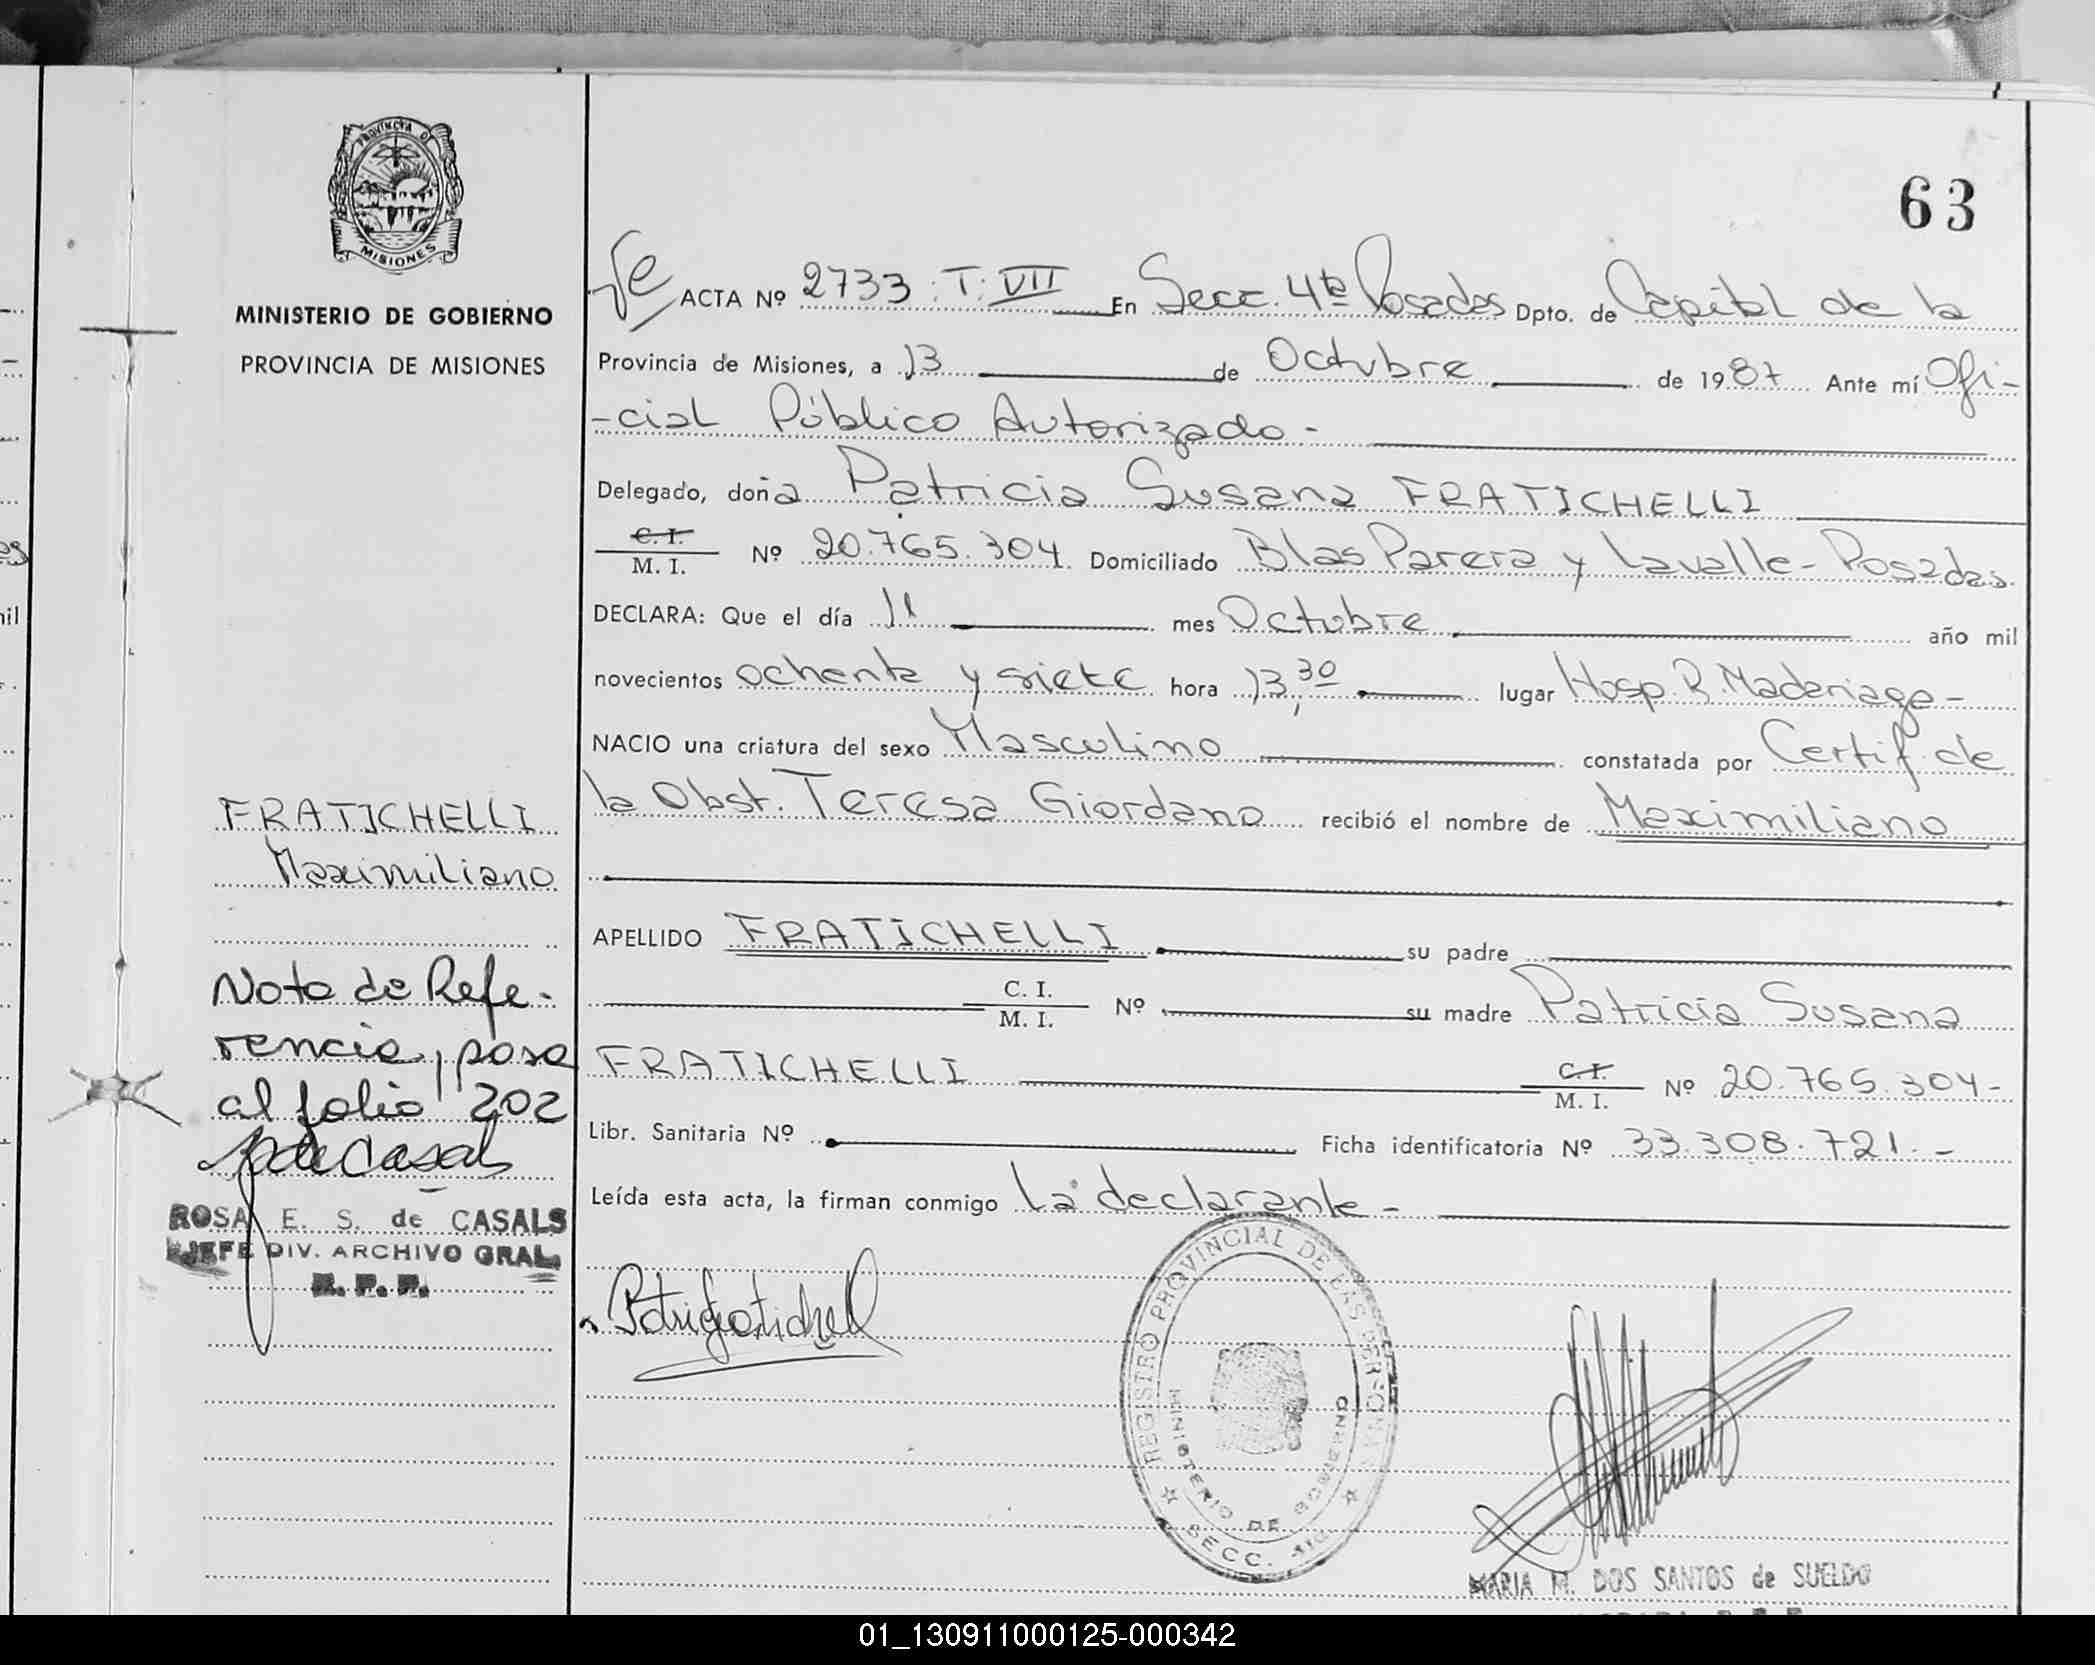 PROVINCIA DE
MISIONES
MINISTERIO DE GOBIERNO
PROVINCIA DE MISIONES
FRATICHELLI
Maximiliano
Nota de Refe-
rencia, pasa
al folio 202
ROSA E. S. de CASALS
JEFE DIV. ARCHIVO GRAL.
R. P. P.
63
ACTA Nº 2733 T: VII En Secc. 4ta Posadas Dpto. de Capital de la
Provincia de Misiones, a 13 de Octubre de 1987 Ante mí Ofi-
-cial Público Autorizado -
Delegado, doña Patricia Susana FRATICHELLI
C. I.
M. I. Nº 20.765.304 Domiciliado Blas Parera y Lavalle - Posadas
DECLARA: Que el día 11 mes Octubre año mil
novecientos ochenta y siete hora 13,30 lugar Hosp. R. Madariaga -
NACIO una criatura del sexo Masculino constatada por Certif. de
la Obst. Teresa Giordano recibió el nombre de Maximiliano
APELLIDO FRATICHELLI su padre
C. I.
M. I. Nº su madre Patricia Susana
FRATICHELLI C. I.
M. I. Nº 20.765.304-
Libr. Sanitaria Nº Ficha identificatoria Nº 33.308.721.-
Leída esta acta, la firman conmigo La declarante -
REGISTRO PROVINCIAL DE LAS PERSONAS
MINISTERIO DE GOBIERNO
SECC. 4ta
MARIA M. DOS SANTOS de SUELDO
01_130911000125-000342